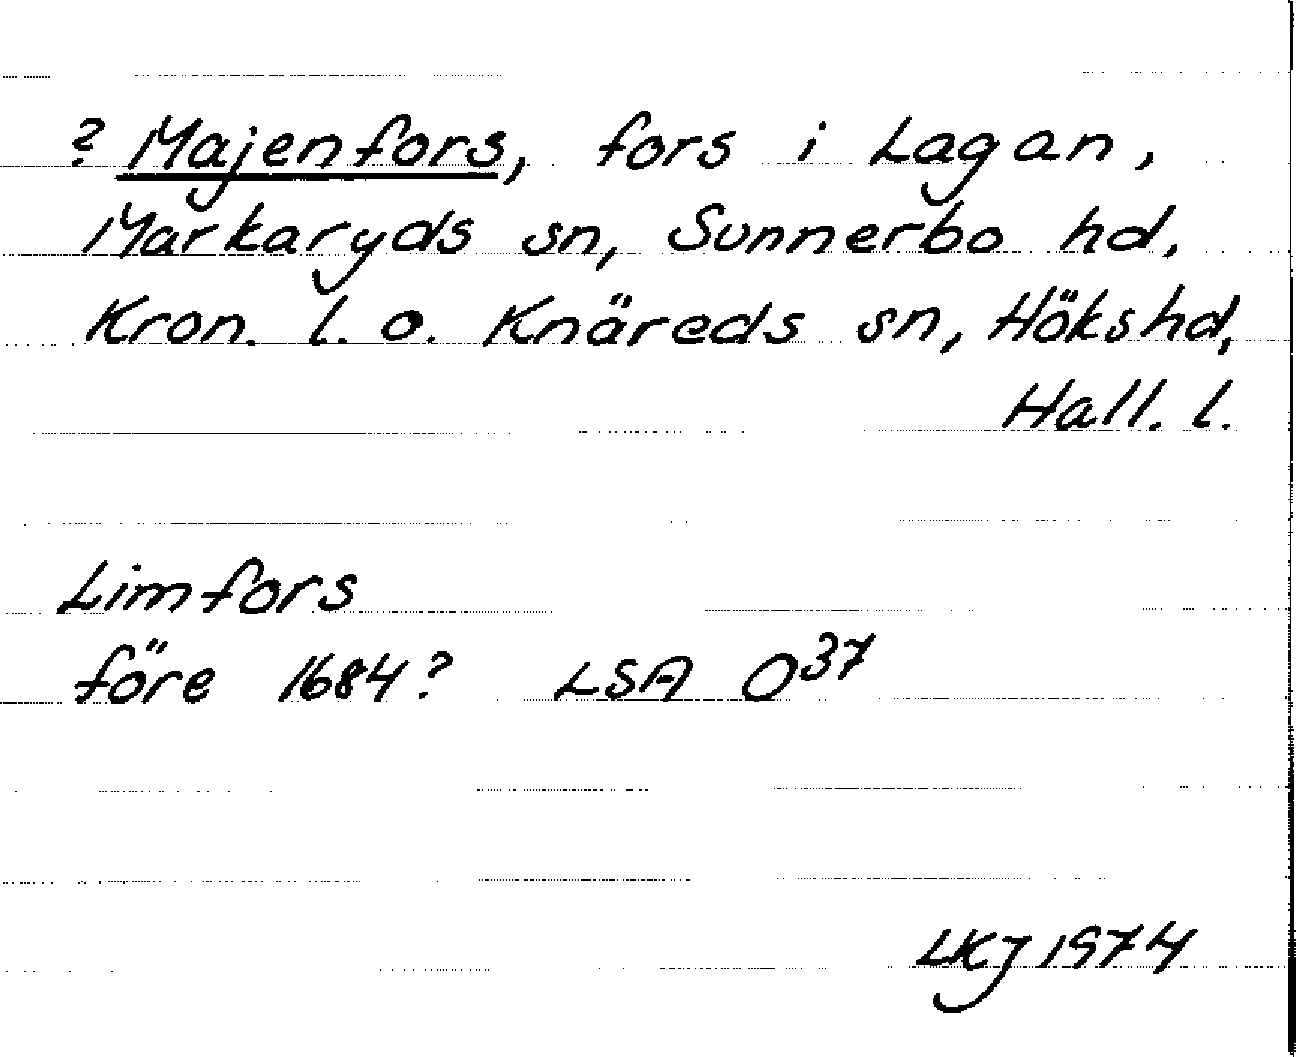 ? Majenfors, fors i Lagan,
Markaryds sn, Sunnerbo hd,
Kron. l. o. Knäreds sn, Höks hd,
Hall. l.
Limfors
före 1684? LSA O37
LKJ 1974